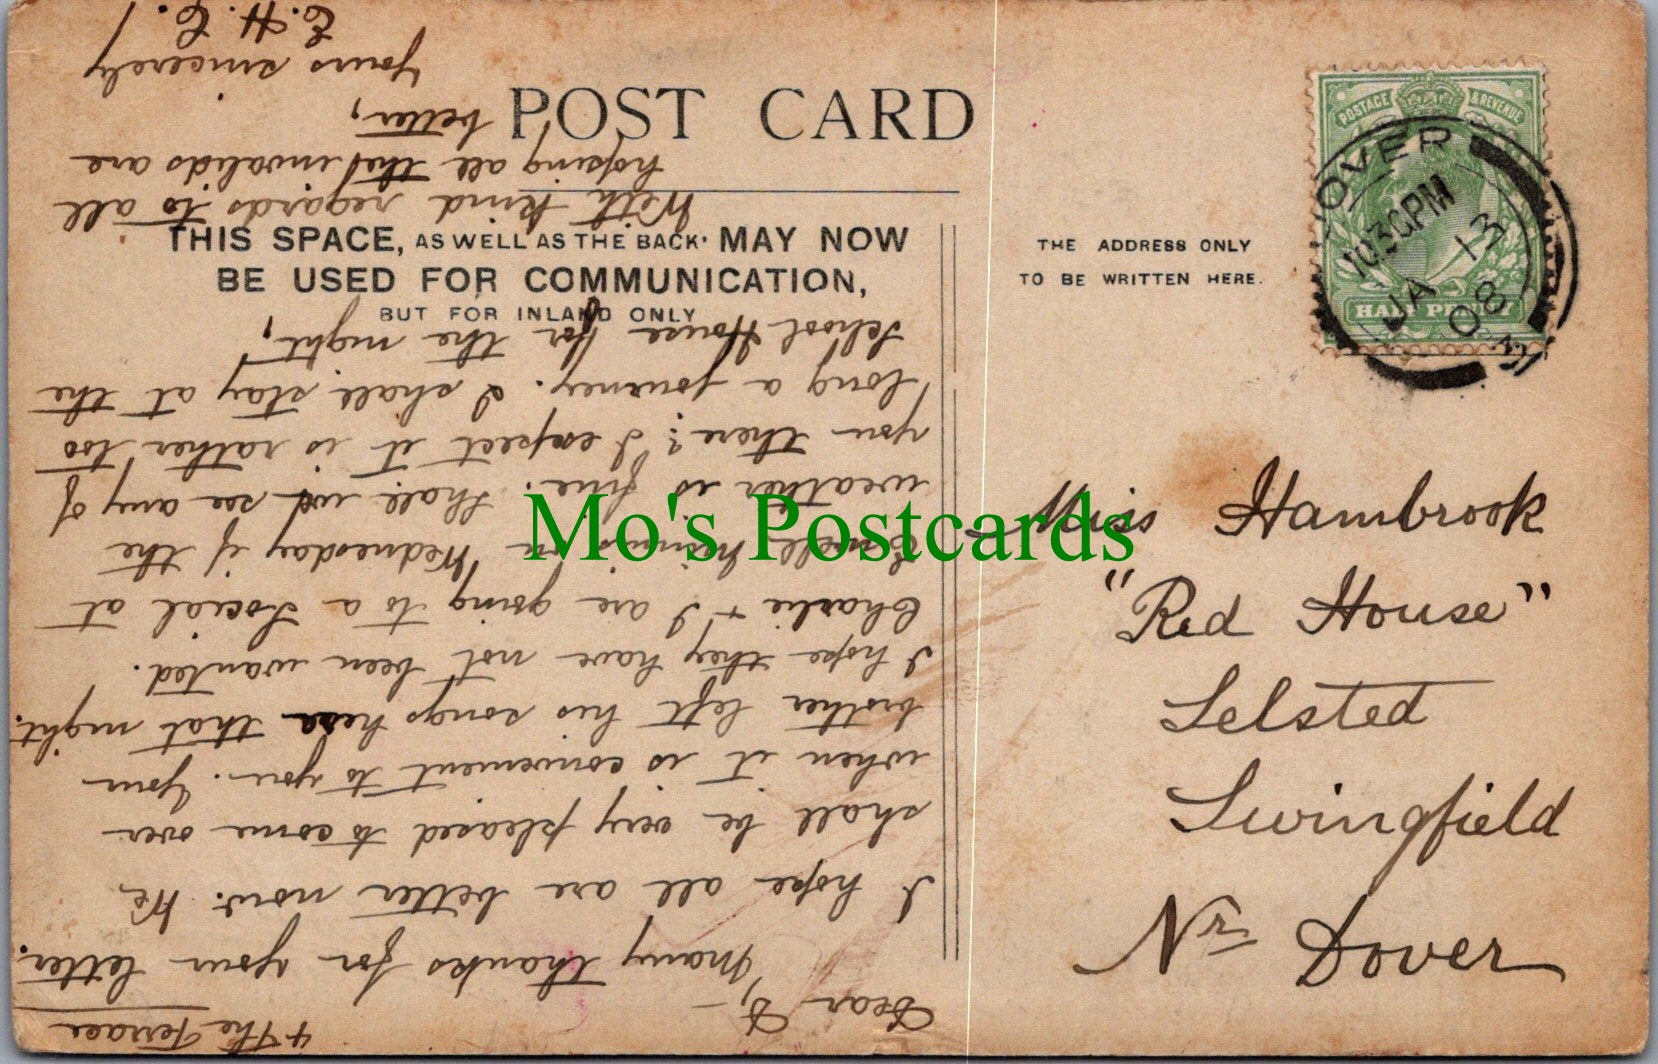 POST CARD
THIS SPACE, AS WELL AS THE BACK, MAY NOW
BE USED FOR COMMUNICATION,
BUT FOR INLAND ONLY
THE ADDRESS ONLY
TO BE WRITTEN HERE.
POSTAGE & REVENUE
HALF PENNY
DOVER
10 30 PM
JA 13
08
Miss Hambrook
"Red House"
Selsted
Swingfield
Nr Dover
Mo's Postcards
4 The Terrace
Dear D,-
Many thanks for your letter.
I hope all are better now. We
shall be very pleased to come over
when it is convenient to you. Your
brother left his songs here that night.
I hope they have not been wanted.
Charlie & I are going to a Social at
on Wednesday if the
weather is fine. Shall we see any of
you there? I expect it is rather too
long a journey. I shall stay at the
School House for the night.
With kind regards to all
hoping all the invalids are
better,
Yours sincerely
E. H. C.